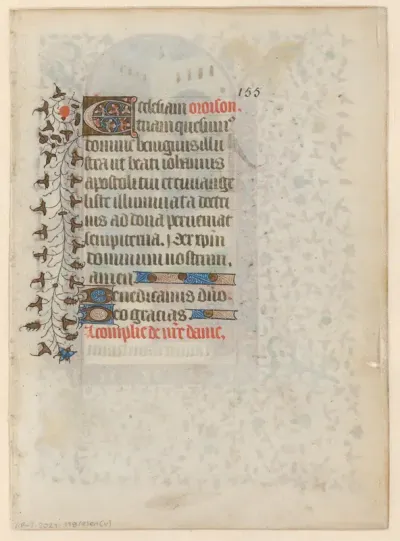 155
Ecclesiam oroison.
tuam quesumus
domine benignus illu
stra ut beati iohannis
apostoli tui et euuange
liste illuminata doctri
nis ad dona perueniat
sempiterna. Per xpm
dominum nostrum.
amen
Benedicamus dño.
Deo gracias.
Complie de nr̃e dame.